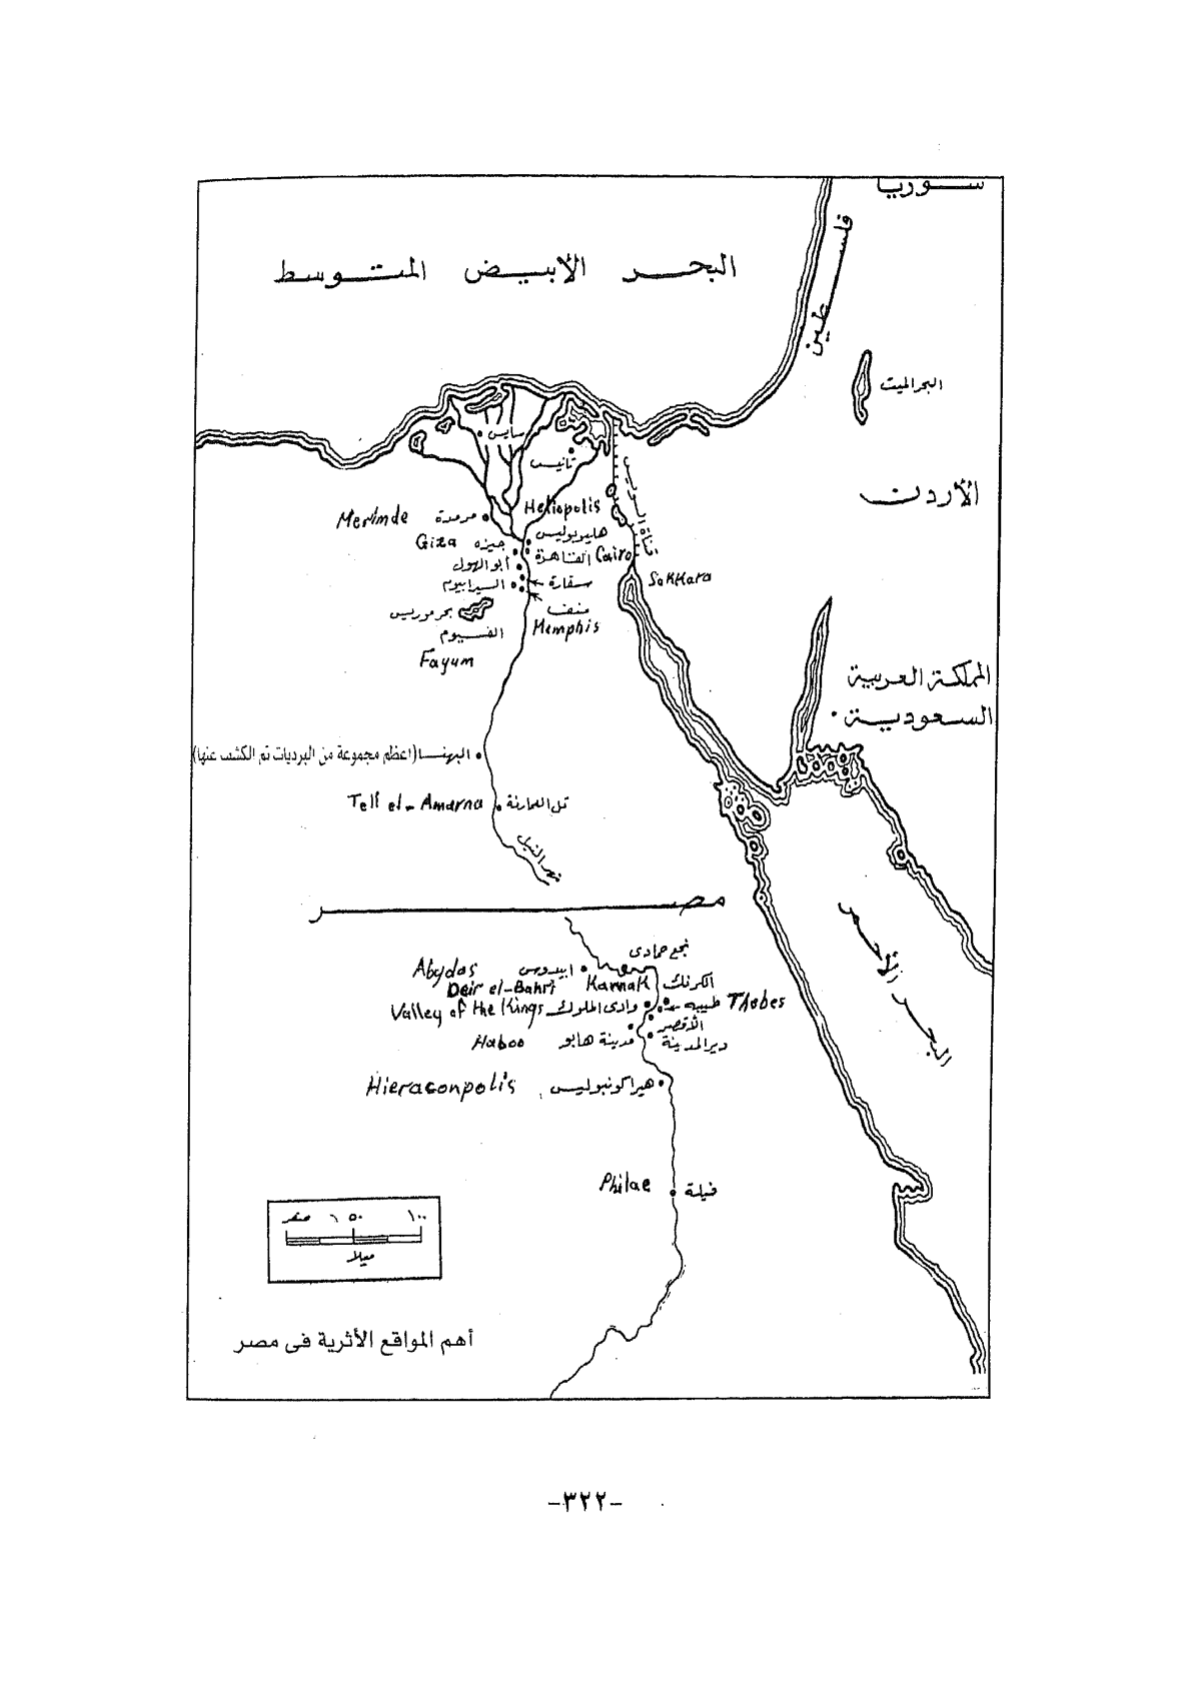 سوريا
فلسطين
البحر الأبيض المتوسط
البحر الميت
سايس
تانيس
الأردن
قناة السويس
Merimde مرمدة
Heliopolis
هليوبوليس
Giza جيزه
القاهرة Cairo
أبو الهول
السيرابيوم
سقارة
Sakkara
بحر موريس
منف
Memphis
الفيوم
Fayum
المملكة العربية
السعودية
البهنسا (اعظم مجموعة من البرديات تم الكشف عنها)
Tell el-Amarna تل العمارنة
نهر النيل
مصر
البحر الأحمر
نجع حمادى
Abydos ابيدوس
Deir el-Bahri
Karnak الكرنك
Valley of the Kings وادى الملوك
طيبه Thebes
الأقصر
Haboo مدينة هابو
دير المدينة
Hieraconpolis هيراكونبوليس
Philae فيلة
صفر ٥٠ ١٠٠
ميلا
أهم المواقع الأثرية فى مصر
-٣٢٢-